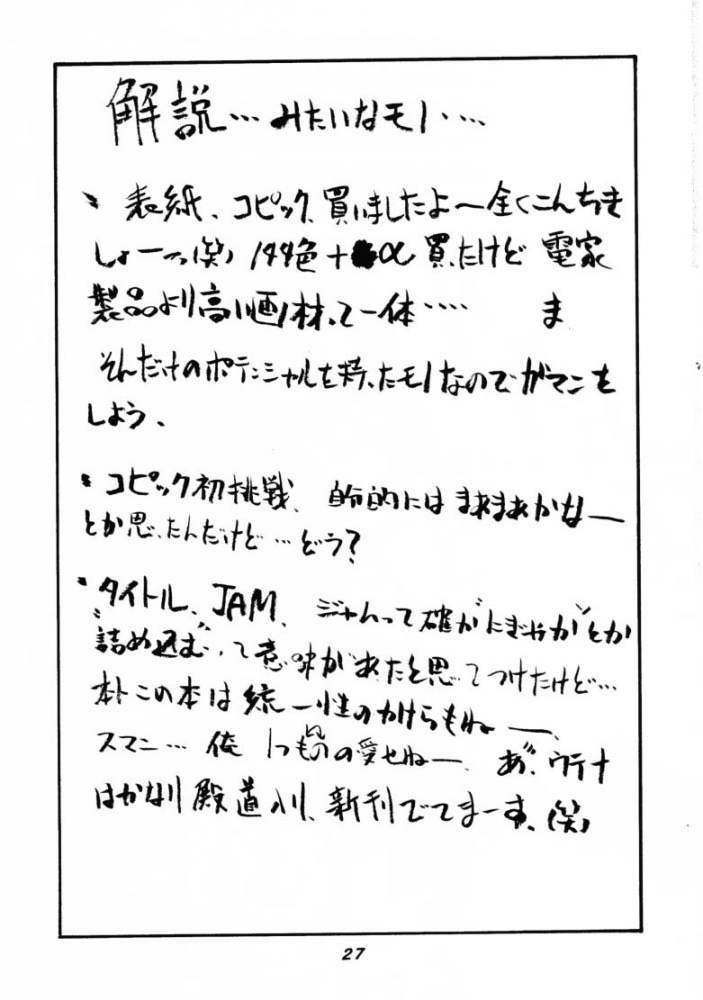 解説…みたいなモノ….
・表紙、コピック、買いましたよ〜全くこんちき
しょーっ(笑) 144色+α買ったけど 電家
製品より高い画材って一体…. ま
そんだけのポテンシャルを持ったモノなのでガマンを
しよう、
・コピック初挑戦、自分的にはまあまあかなー
とか思ったんだけど…どう?
・タイトル、JAM、ジャムって確か"にぎやか"とか
"詰め込む"って意味があったと思ってつけたけど…
本トこの本は統一性のかけらもねー、
スマン… 俺 いつもの愛せねー、 あ、ウテナ
はかなり殿道入り、新刊でてまーす、(笑)
27